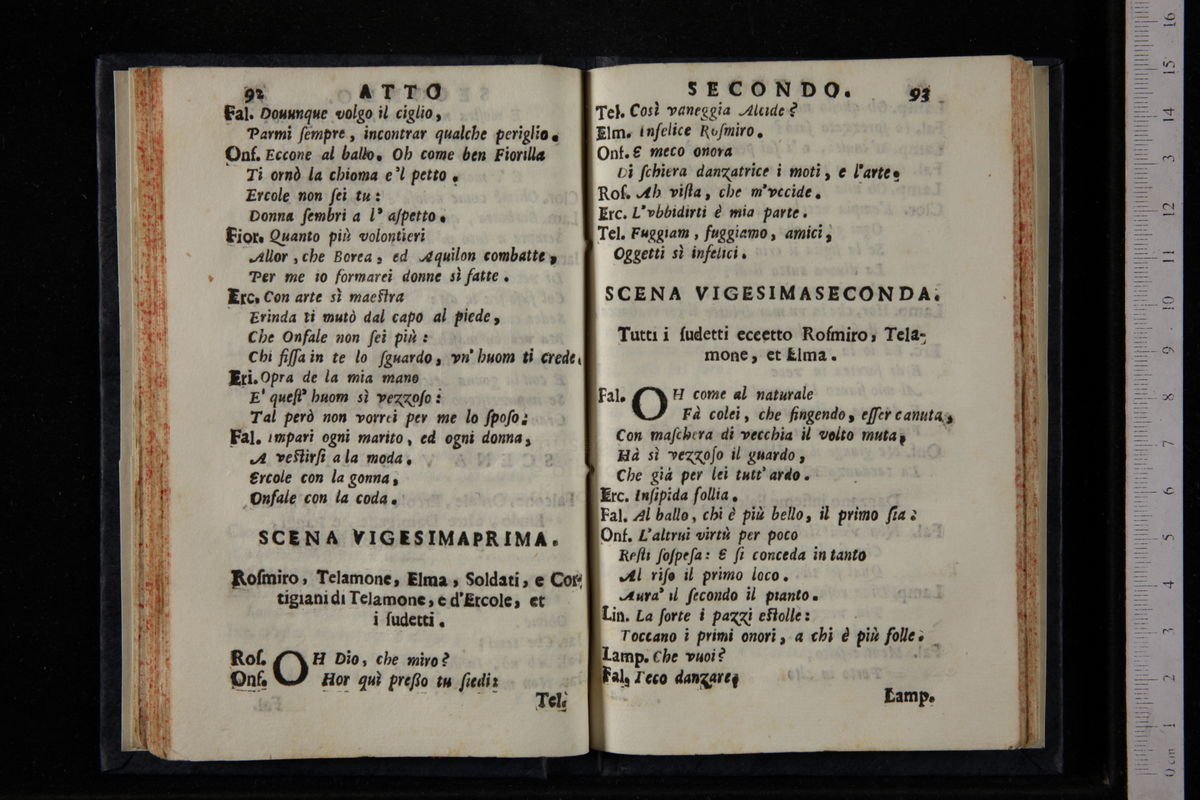 92 ATTO
Fal. Douunque volgo il ciglio,
Parmi ſempre, incontrar qualche periglio.
Onf. Eccone al ballo. Oh come ben Fiorilla
Ti ornò la chioma e'l petto.
Ercole non ſei tu:
Donna ſembri a l' aſpetto.
Fior. Quanto più volontieri
Allor, che Borea, ed Aquilon combatte,
Per me io formarei donne sì fatte.
Erc. Con arte sì maeſtra
Erinda ti mutò dal capo al piede,
Che Onfale non ſei più:
Chi fiſſa in te lo ſguardo, vn' huom ti crede.
Eri. Opra de la mia mano
E' queſt' huom sì vezzoſo:
Tal però non vorrei per me lo ſpoſo:
Fal. Impari ogni marito, ed ogni donna,
A veſtirſi a la moda.
Ercole con la gonna,
Onfale con la coda.
SCENA VIGESIMAPRIMA.
Roſmiro, Telamone, Elma, Soldati, e Cor-
tigiani di Telamone, e d'Ercole, et
i ſudetti.
Roſ. OH Dio, che miro?
Onf. Hor quì preßo tu ſiedi:
Tel.
SECONDO. 93
Tel. Così vaneggia Alcide?
Elm. Infelice Roſmiro.
Onf. E meco onora
Di ſchiera danzatrice i moti, e l'arte.
Roſ. Ah viſta, che m'vccide.
Erc. L'vbbidirti è mia parte.
Tel. Fuggiam, fuggiamo, amici,
Oggetti sì infelici.
SCENA VIGESIMASECONDA.
Tutti i ſudetti eccetto Roſmiro, Tela-
mone, et Elma.
Fal. OH come al naturale
Fà colei, che fingendo, eſſer canuta,
Con maſchera di vecchia il volto muta,
Hà sì vezzoſo il guardo,
Che già per lei tutt' ardo.
Erc. Inſipida follia.
Fal. Al ballo, chi è più bello, il primo ſia:
Onf. L'altrui virtù per poco
Reſti ſoſpeſa: E ſi conceda intanto
Al riſo il primo loco.
Aura' il ſecondo il pianto.
Lin. La ſorte i pazzi eſtolle:
Toccano i primi onori, a chi è più folle.
Lamp. Che vuoi?
Fal. Teco danzare.
Lamp.
0 cm 1 2 3 4 5 6 7 8 9 10 11 12 13 14 15 16